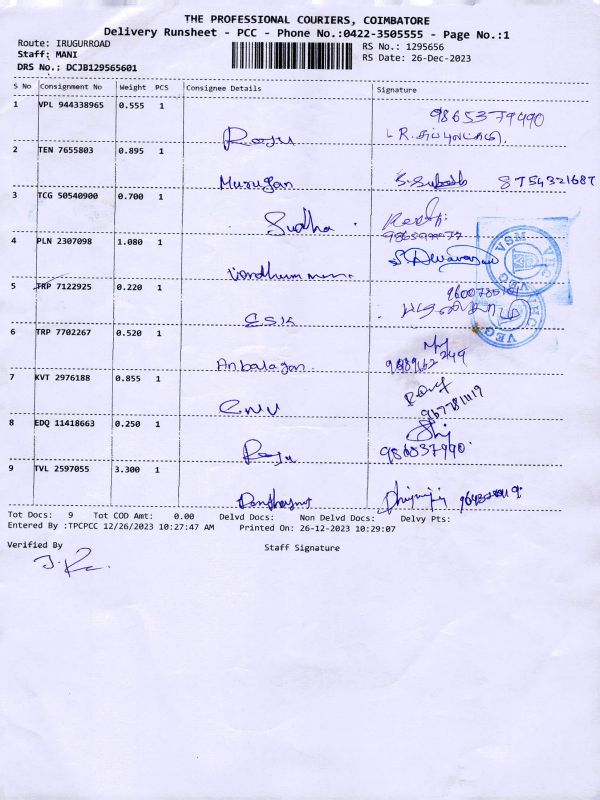 THE PROFESSIONAL COURIERS, COIMBATORE
Delivery Runsheet - PCC - Phone No.:0422-3505555 - Page No.:1
Route: IRUGURROAD
RS No.: 1295656
Staff: MANI
RS Date: 26-Dec-2023
DRS No.: DCJB129565601
S No Consignment No Weight PCS Consignee Details Signature
1 VPL 944338965 0.555 1
9865379490
Raju
2 TEN 7655803 0.895 1
Murugan S. Subash 8754321687
3 TCG 50540900 0.700 1
Sudha
4 PLN 2307098 1.080 1
S. Devarasu
5 TRP 7122925 0.220 1
C.S.K
6 TRP 7702267 0.520 1
Anbalagan
7 KVT 2976188 0.855 1
8 EDQ 11418663 0.250 1
Raju
9 TVL 2597055 3.300 1
Tot Docs: 9 Tot COD Amt: 0.00 Delvd Docs: Non Delvd Docs: Delvy Pts:
Entered By :TPCPCC 12/26/2023 10:27:47 AM Printed On: 26-12-2023 10:29:07
Verified By Staff Signature